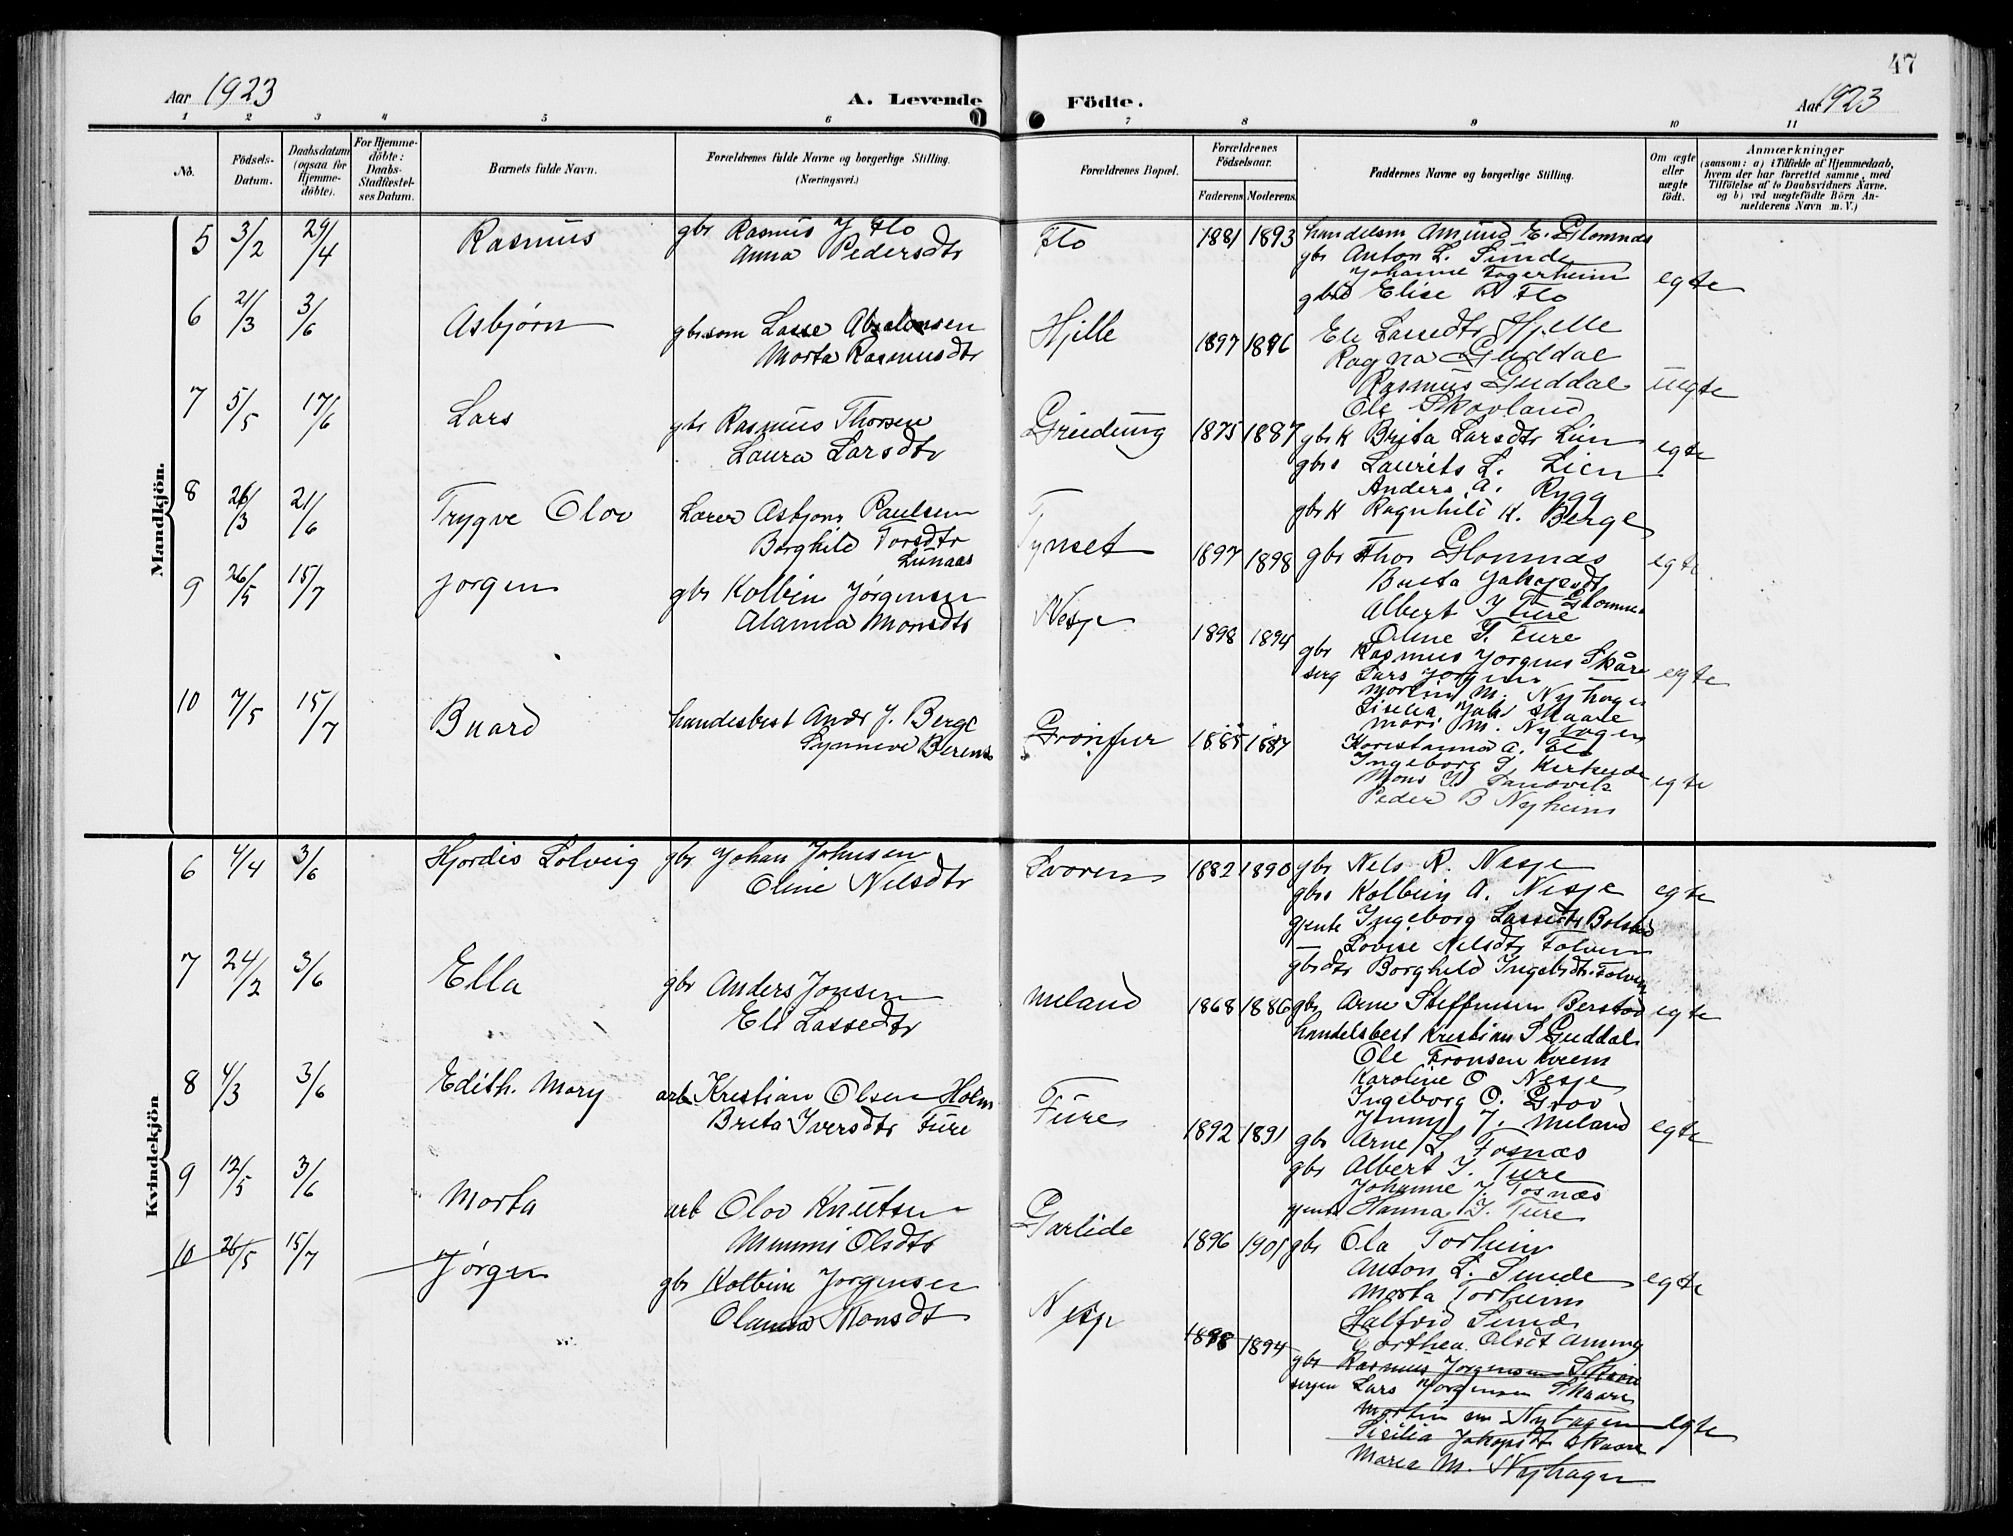 47
Aar 1923
A. Levende Födte.
Aar 1923
1 2 3 4 5 6 7 8 9 10 11
No.
Födsels-
Datum.
Daabsdatum
(ogsaa for
Hjemme-
döbte).
For Hjemme-
döbte:
Daabs-
Stadfæstel-
ses Datum.
Barnets fulde Navn.
Forældrenes fulde Navne og borgerlige Stilling.
(Næringsvei.)
Forældrenes Bopæl.
Forældrenes
Födselsaar.
Faderens Moderens.
Faddernes Navne og borgerlige Stilling.
Om ægte
eller
uægte
födt.
Anmærkninger
(saasom: a) i Tilfælde af Hjemmedaab,
hvem der har forrettet samme, med
Tilföielse af to Daabsvidners Navne,
og b) ved uægtefödte Börn An-
melderens Navn m. V.)
Mandkjön.
5 3/2 29/4 Rasmus gbr Rasmus J Flo
Anna Pedersdtr
Flo 1881 1893 handelsm Amund E. Glomnæs
gbr Anton L. Sunde
Johanne Fagerheim
Elise R Flo
egte
6 21/3 3/6 Asbjørn gbrsøn Lasse Absalonsen
Marta Rasmusdtr
Hjelle 1897 1896 Eli Lassedtr Hjelle
Ragna Guddal
Rasmus Guddal
Ole Skavland
uegte
7 5/5 17/6 Lars gbr Rasmus Thorsen
Laura Larsdtr
Greidung 1875 1887 gbrk Brita Larsdtr Lien
gbrs Laurits L. Lien
Anders A. Rygg
gbrk Ragnhild K. Berge
egte
8 26/3 21/6 Trygve Olav Lærer Asbjørn Paulsen
Borghild Torsdtr
Lunaas
Tynset 1897 1898 gbr Thor Glomnæs
Brita Jakopsdtr
Glomnes
Albert J Fure
Oline J. Fure
egte
9 26/5 15/7 Jørgen gbr Kolbein Jørgensen
Olanna Monsdtr
Nesje 1898 1894 gbr Rasmus Jørgens Skåre
serg Lars Jørgens
Martin M. Nyhagen
Sisilia Jakd Skaare
Mari M. Nyhagen
egte
10 7/5 15/7 Buard handesbest Andr J. Berge
Synneve Berens
1885 1887 Kristianna A. Flo
Ingeborg S Kirkeide
Mons D. Sandvik
Peder B Nyheim
egte
Kvindekjön
6 4/4 3/6 Hjørdis Solveig gbr Johan Johnsen
Oline Nilsdtr
Svoren 1882 1890 gbr Nils R. Nesje
gbrs Kolbein A. Nesje
gjente Ingeborg Lassedtr Bolstad
— Lovise Nilsdtr Tolven
gbrdtr Borghild Ingebrdtr. Tolven
egte
7 24/2 3/6 Ella gbr Anders Jonsen
Eli Lassedtr
Meland 1868 1886 gbr Arne Steffensen Berstad
handelsbest Kristian S Guddal
Ole Fransen Kveem
Karoline O Nesje
Ingeborg O. Grov
Jenny J. Meland
egte
8 4/3 3/6 Edith Mary arb Kristian Olsen Holm
Brita Iversdtr Fure
Fure 1892 1891 gbr Arne L. Tosnæs
gbr Albert J. Fure
Johanne J. Tosnæs
gjente Hanna J. Fure
egte
9 12/5 3/6 Marta arb Olav Knutsen
Mimmi Olsdtr
Garlide 1896 1901 gbr Ola Torheim
Anton L. Sunde
Marta Torheim
Halfrid Sunde
Dorthea Olsdt
egte
10 26/5 15/7 Jørgen gbr Kolbein Jørgensen
Olanna Monsdt
Nesje 1898 1894 gbr Rasmus Jørgensen Skaare
sergen Lars Jørgensen Skaare
Martin M Nyhagen
Sisilia Jakopsdt Skaare
Maria M. Nyhagen
egte